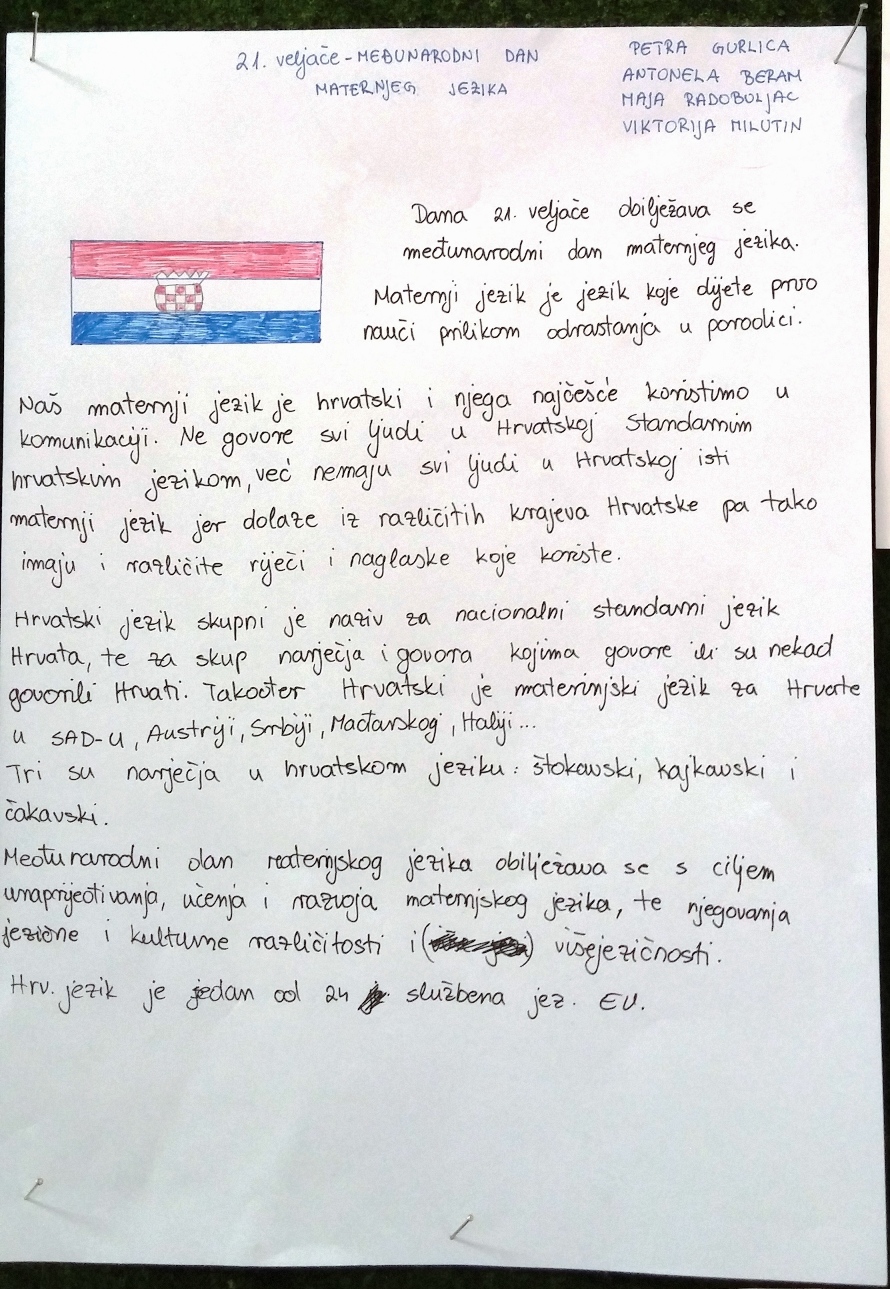 21. veljače - MEĐUNARODNI DAN
MATERNJEG JEZIKA
PETRA GURLICA
ANTONELA BERAM
MAJA RADOBULJAC
VIKTORIJA MILUTIN
Dana 21. veljače obilježava se
međunarodni dan maternjeg jezika.
Maternji jezik je jezik koje dijete prvo
nauči prilikom odrastanja u porodici.
Naš maternji jezik je hrvatski i njega najčešće koristimo u
komunikaciji. Ne govore svi ljudi u Hrvatskoj standarnim
hrvatskim jezikom, već nemaju svi ljudi u Hrvatskoj isti
maternji jezik jer dolaze iz različitih krajeva Hrvatske pa tako
imaju i različite riječi i naglaske koje koriste.
Hrvatski jezik skupni je naziv za nacionalni standarni jezik
Hrvata, te za skup narječja i govora kojima govore ili su nekad
govorili Hrvati. Također Hrvatski je materinjski jezik za Hrvate
u SAD-U, Austriji, Srbiji, Mađarskoj, Italiji...
Tri su narječja u hrvatskom jeziku: štokavski, kajkavski i
čakavski.
Međunarodni dan maternjskog jezika obilježava se s ciljem
unaprijeđivanja, učenja i razvoja maternjskog jezika, te njegovanja
jezične i kulturne različitosti i ( ) višejezičnosti.
Hrv. jezik je jedan od 24 službena jez. EU.